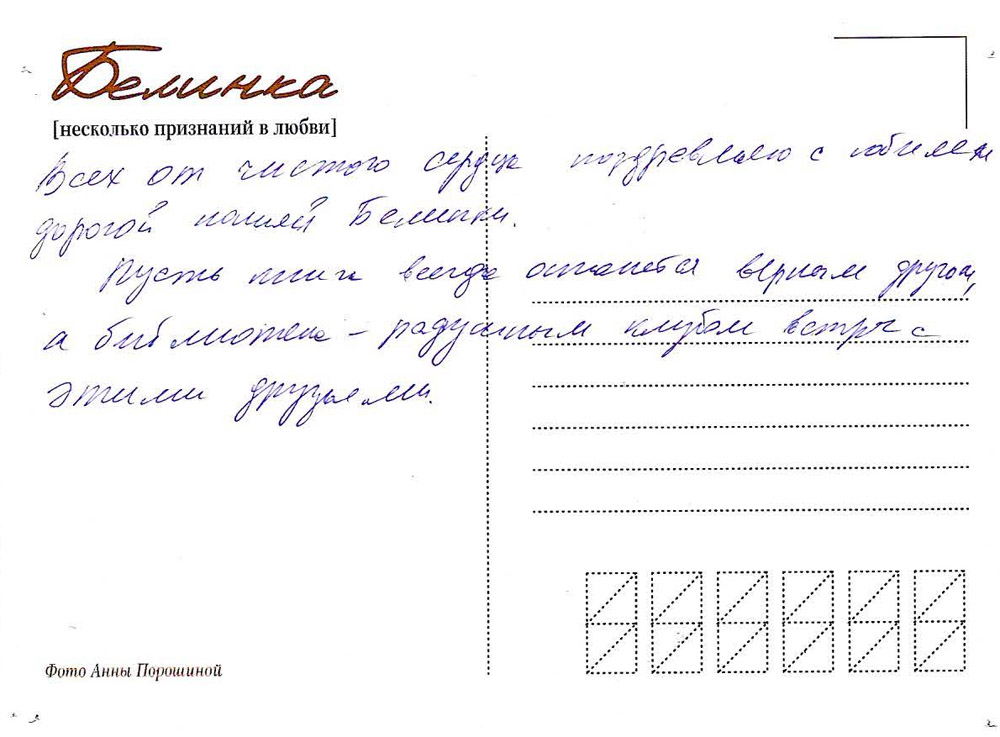 Белинка
[несколько признаний в любви]
Всех от чистого сердца поздравляю с юбилеем
дорогой нашей Белинки.
Пусть книга всегда останется верным другом,
а библиотека – радушным клубом встреч с
этими друзьями.
Фото Анны Порошиной